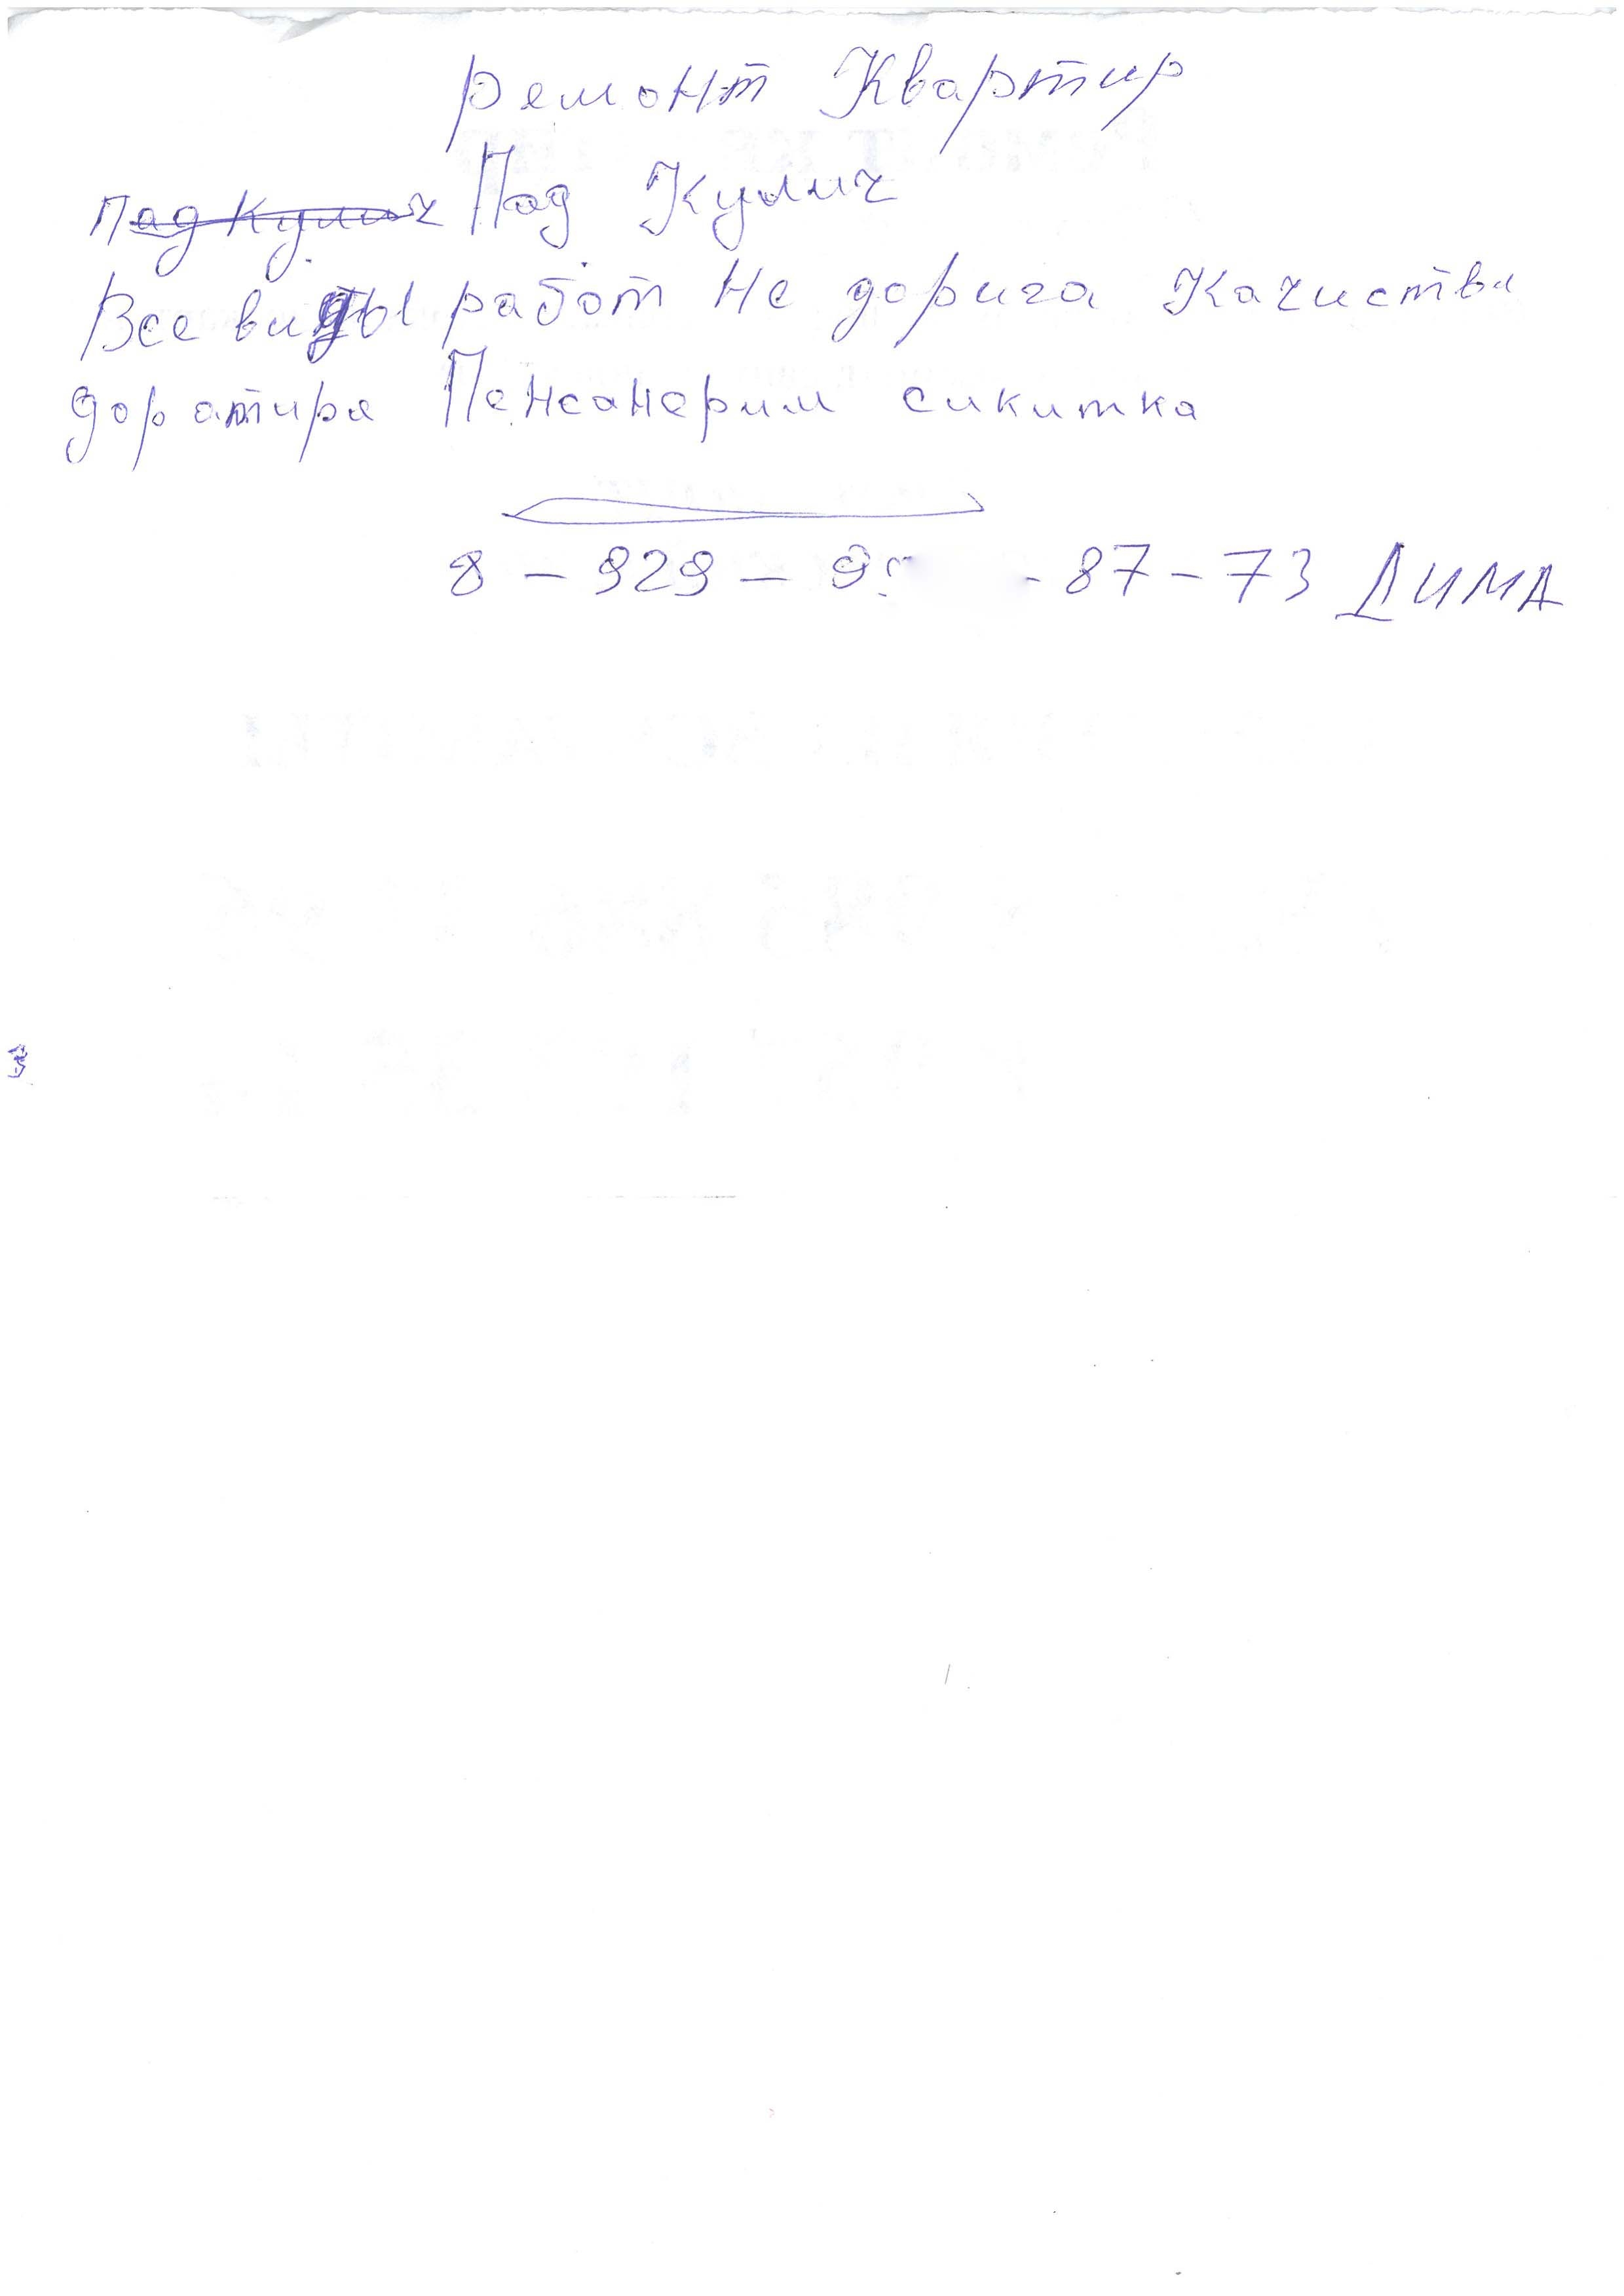 Ремонт Квартир
Пад Кулич Пад Кулич
Все виды работ Не дорига Качиства
дор атира Пенсанерим сикитка
8 - 929 - 9 - 87 - 73 ДИМА
3